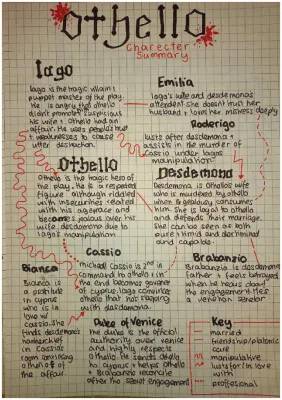 Othello
Charecter
Summary
Iago
Iago is the tragic villain +
puppet master of the play.
He is angry that othello
didn't promote suspicious
his wife + Othello had an
affair. He uses people's trust
+ weaknesses to cause
utter destruction.
Emilia
Iago's wife and desdemonas
attendent. She doesn't trust her
husband + loves her mistress deeply
Roderigo
lusts after desdemona +
assists in the murder of
Cassio under Iagos
manipulation.
Othello
Othello is the tragic hero of
the play. He is a respected
figure although riddled
with insecurities related
with his age race and
becomes jealous over his
wife, desdemona due to
Iago's manipulation.
Desdemona
Desdemona is Othello's wife
who is murdered by othello
when jealousy consumes
him. She is loyal to othello
and defends their marriage.
She can be seen as both
pure + timid and dorminant
and capable
Cassio
micheal Cassio is 2nd in
command to othello + in
the end becomes governer
of cyprus. Iago convinces
othello that hes sleeping
with desdemona.
Bianca
Bianca is
a prostitute
in cyprus
who is in
love w/
cassio. she
finds desdemona's
hankerchief
in Cassios
room convinsing
othello of
the affair.
Brabanzio
Brabanzio is desdemonas
father + feels betrayed
when he hears about
the engagement. He is
a venetian senator
Duke of Venice
The duke is the official
authority over venice
and highly respects
othello. He sends othello
to cyprus + helps othello
+ Brabanzio reconcile
after the secret engagement
Key
married
friendship/platonic
care
manipulative
lusts for/in love
with
proffesional